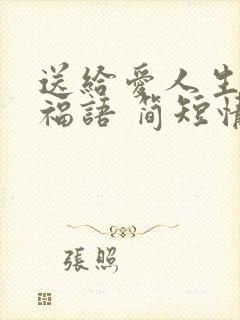 送給愛人生
福語 简短情
張照